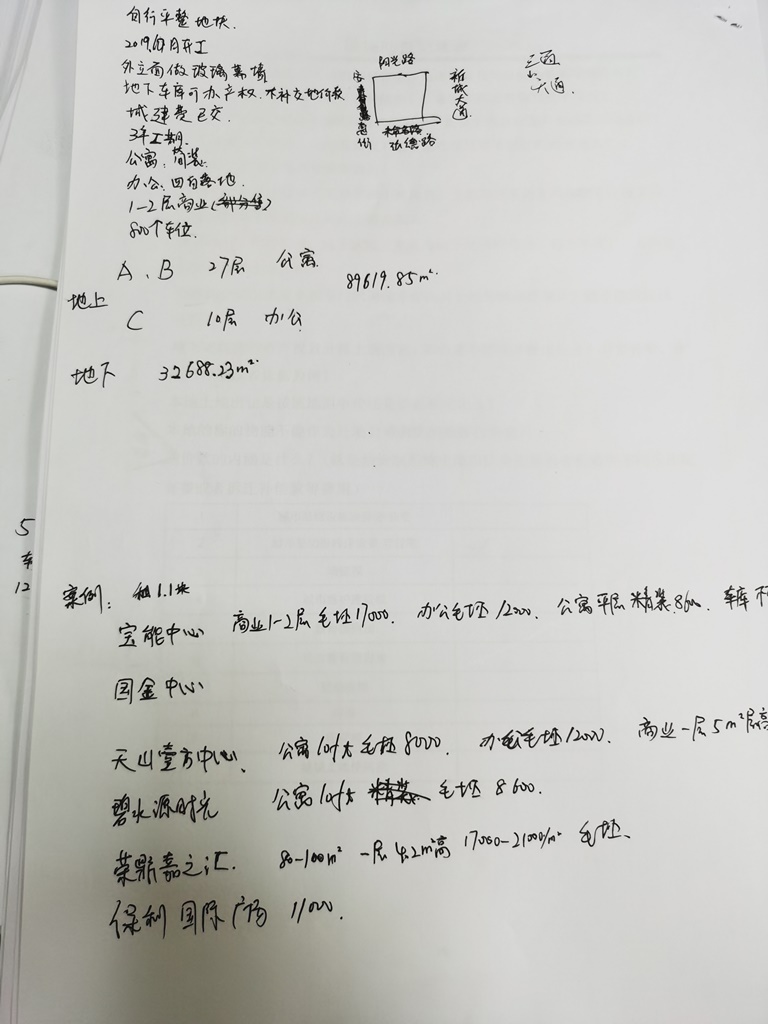 自行平整地块.
2019年 月开工
外立面做玻璃幕墙
地下车库可办产权.不补交地价款
城建费已交.
3年工期.
公寓:简装.
办公:四白落地.
1-2层商业(部分售)
800个车位.
阳光路
新城大道
弘德路
三面
大道.
A、B 27层 公寓
89619.85m².
地上
C 10层 办公
地下 32688.23m²
5
车
12
案例: 租1.1块
宝能中心 商业1-2层毛坯17000. 办公毛坯12000. 公寓平层精装8600. 车库不
国金中心
天山壹方中心、 公寓loft毛坯8000. 办公毛坯12000. 商业一层5m²层高
碧水源时光 公寓loft 精装 毛坯8600.
荣鼎嘉之汇. 80-100m² 一层4.2m²高 17000-21000/m² 毛坯、
保利国际广场 11000.